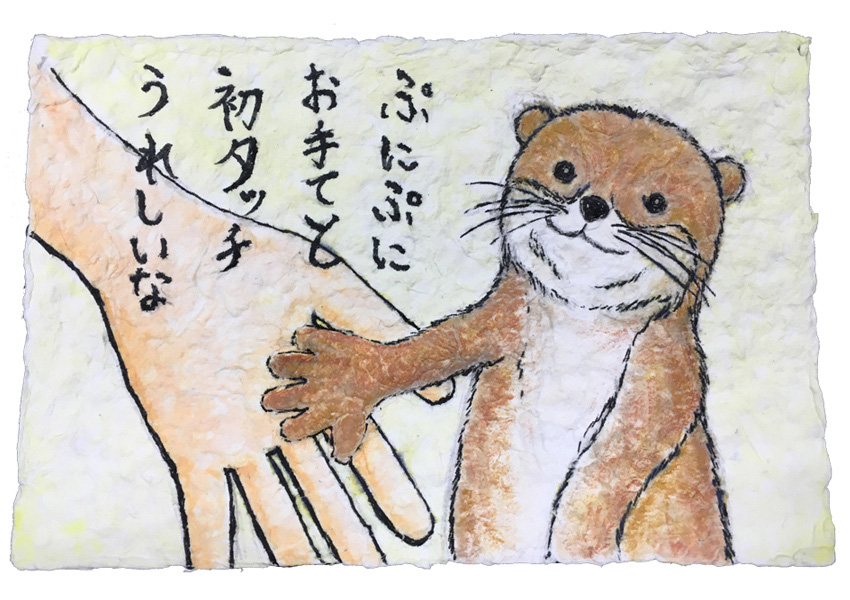 ぷにぷに
お手てと
初タッチ
うれしいな